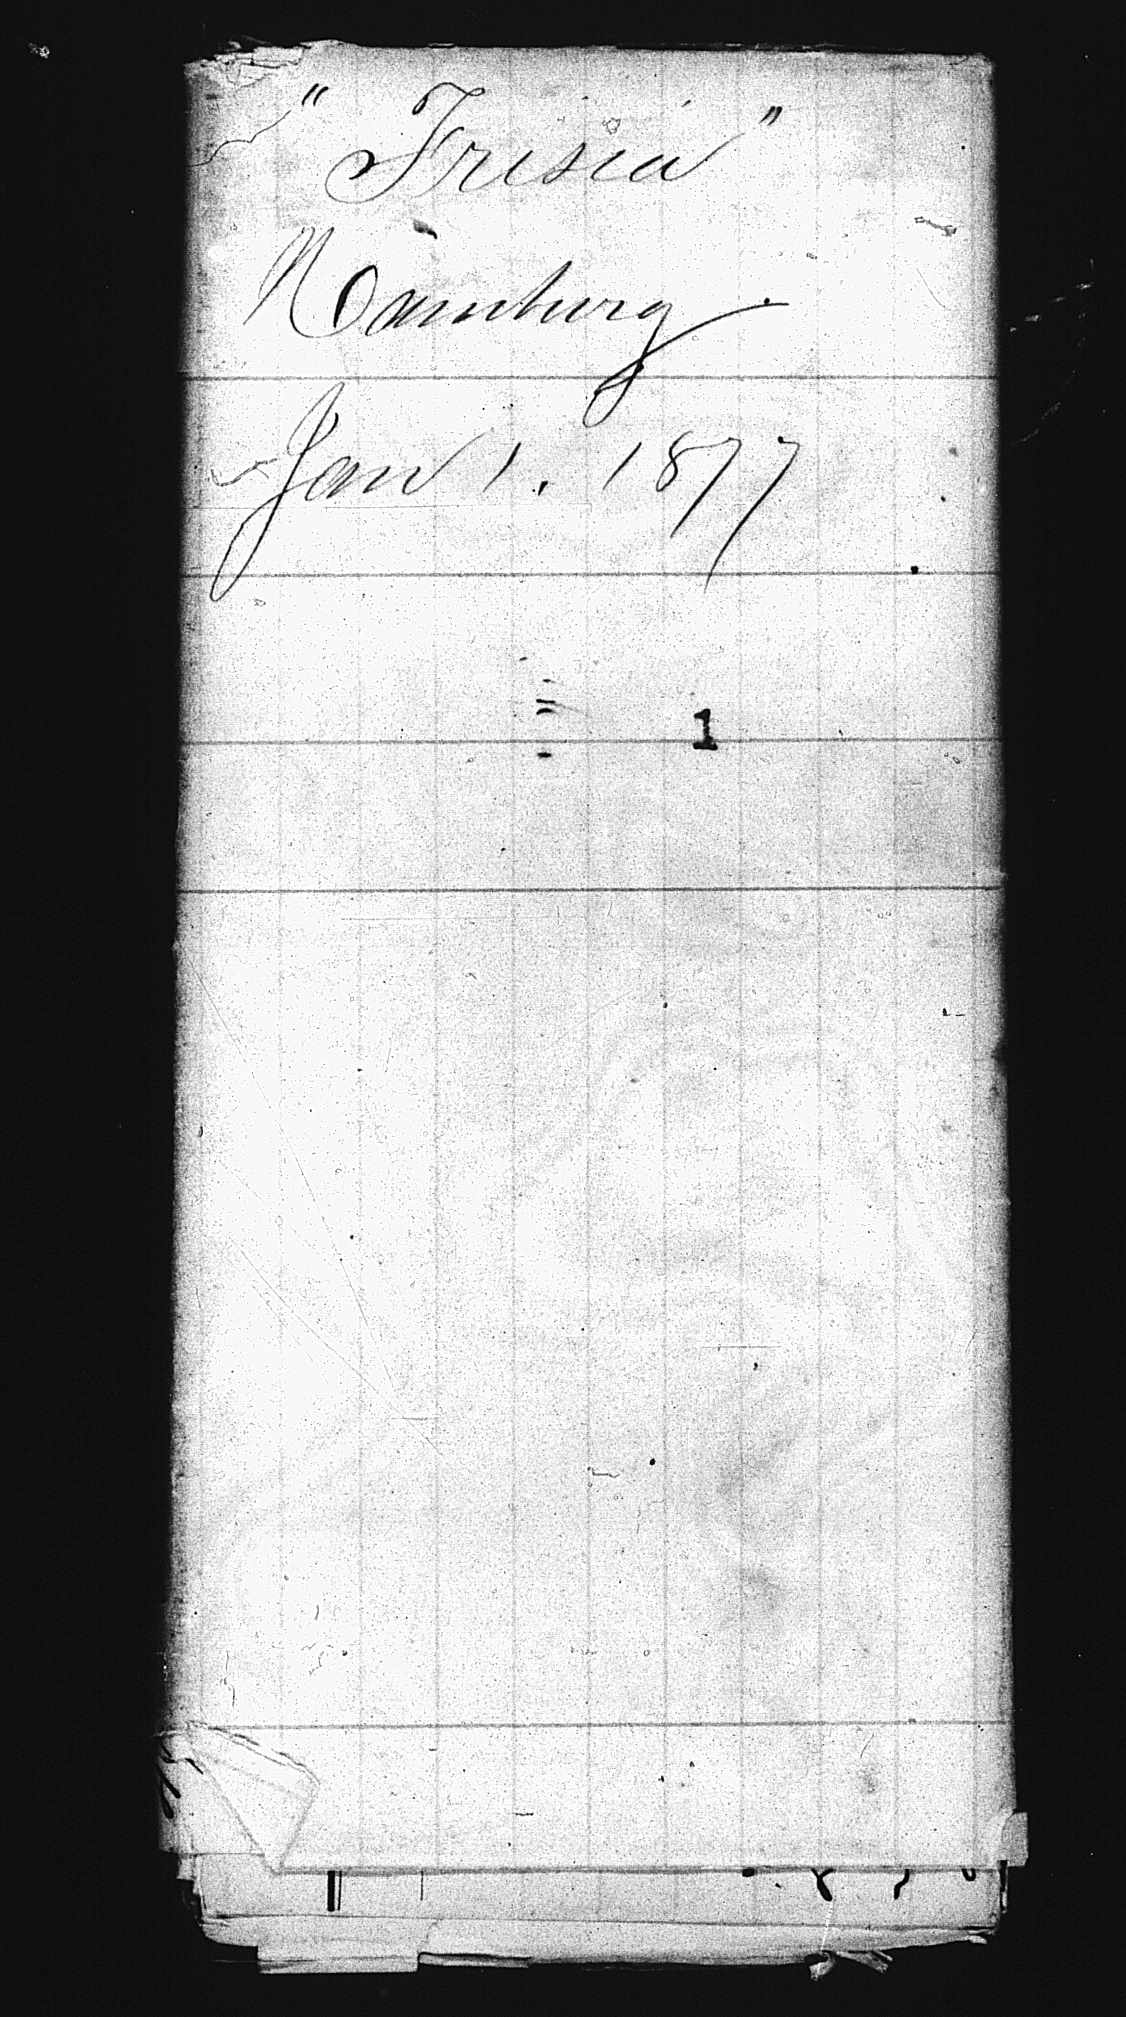 "Frisia"
Hamburg
Jan 1. 1877
1